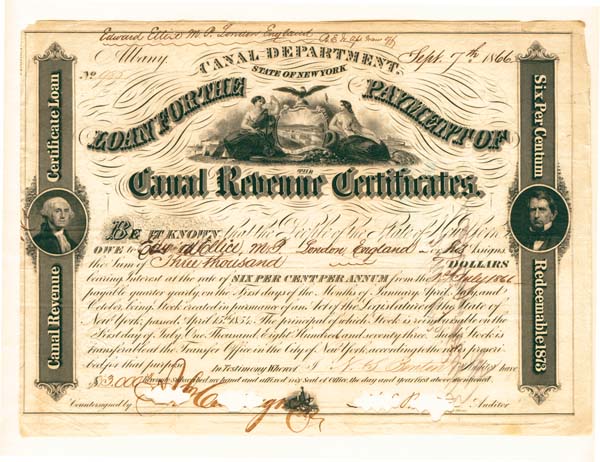 Edward Ellice M.P. London England
Albany, Sept. 7th 1866
CANAL DEPARTMENT.
No
STATE OF NEW YORK
LOAN FOR THE PAYMENT OF
THE
Canal Revenue Certificates.
BE IT KNOWN, That the People of the State of New York
OWE to Edward Ellice, M.P. London, England or his Assigns
the Sum of Three thousand DOLLARS
bearing Interest at the rate of SIX PER CENT PER ANNUM from the
payable quarter yearly, on the First days of the Months of January, April, July and
October, being Stock created in pursuance of an Act of the Legislature of the State of
New York, passed April 15th 1854. The principal of which Stock is reimbursable on the
First day of July One Thousand Eight Hundred and seventy three. Said Stock is
transferable at the Transfer Office in the City of New York, according to the rules prescri-
bed for that purpose. In Testimony Whereof I, Auditor have
$3,000 hereunto subscribed my hand and affixed my Seal of Office, the day and year first above mentioned.
Countersigned by Auditor
Canal Revenue Certificate Loan
Six Per Centum Redeemable 1873